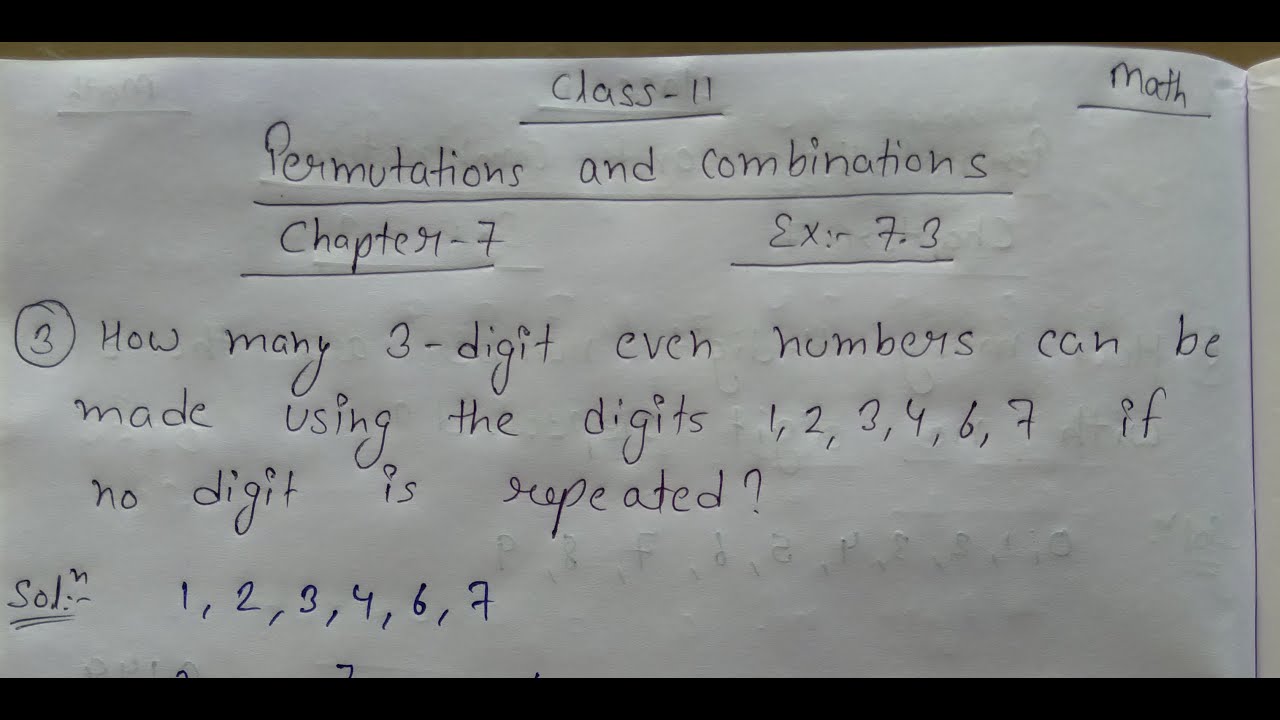 Class-11
Math
Permutations and combinations
Chapter-7 Ex:- 7.3
③ How many 3-digit even numbers can be
made using the digits 1, 2, 3, 4, 6, 7 if
no digit is repeated?
Solⁿ:- 1, 2, 3, 4, 6, 7